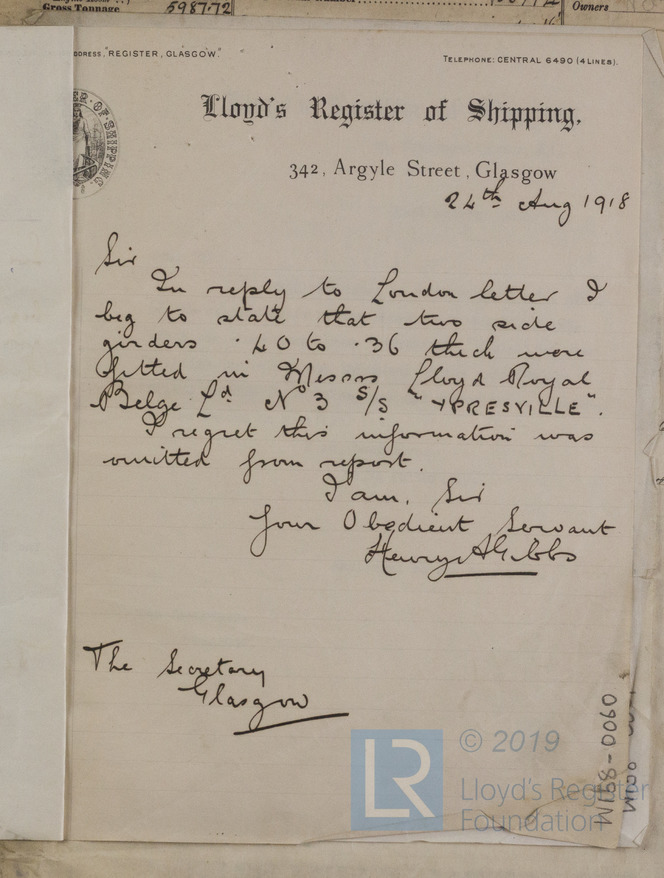 Gross Tonnage 5987.72
Owners
DDRESS, "REGISTER, GLASGOW."
TELEPHONE: CENTRAL 6490 (4 LINES).
Lloyd's Register of Shipping,
342, Argyle Street, Glasgow
24th Aug 1918
Sir
In reply to London letter I
beg to state that two side
girders .40 to .36 thick were
fitted in Messrs Lloyd Royal
Belge Ld No 3 S/S "YPRESVILLE".
I regret this information was
omitted from report.
I am, Sir
Your Obedient Servant
Henry A Gibbs
The Secretary
Glasgow
W198-0060
LR
© 2019
Lloyd's Register
Foundation